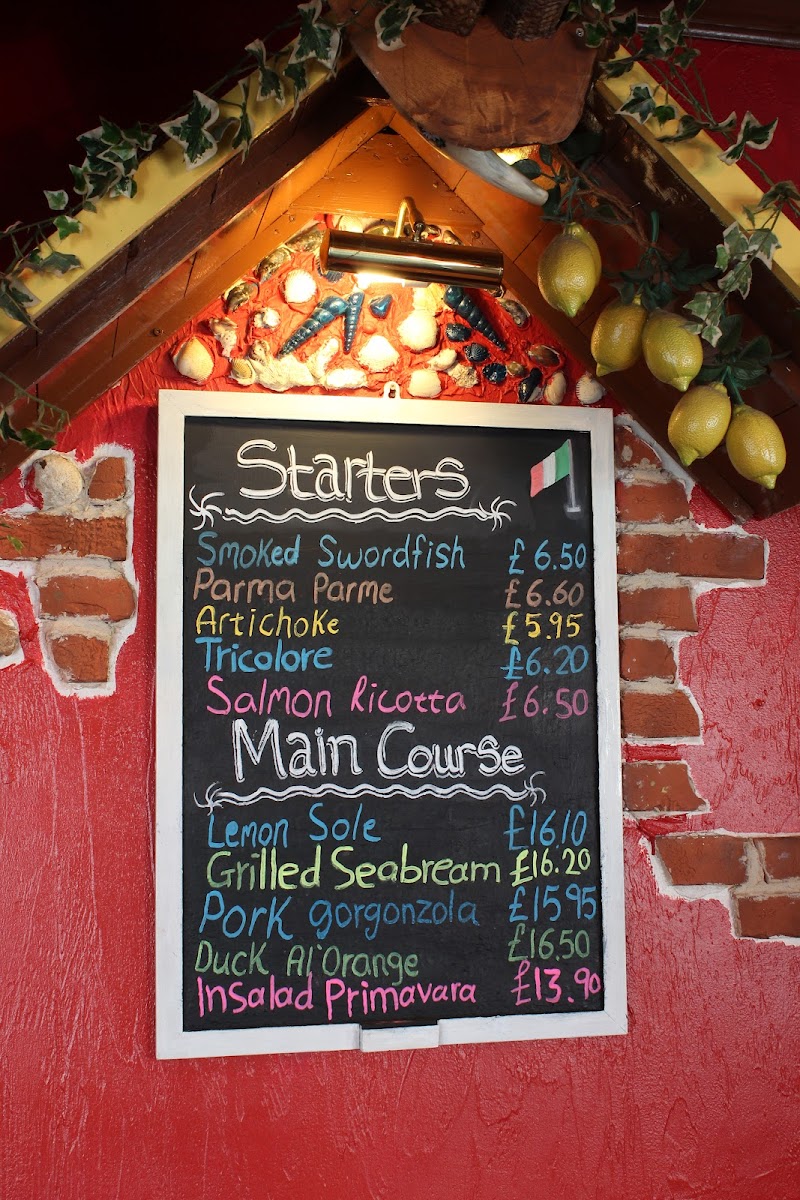 Starters
Smoked Swordfish £6.50
Parma Parme £6.60
Artichoke £5.95
Tricolore £6.20
Salmon Ricotta £6.50
Main Course
Lemon Sole £16.10
Grilled Seabream £16.20
Pork gorgonzola £15.95
Duck Al'Orange £16.50
Insalad Primavara £13.90